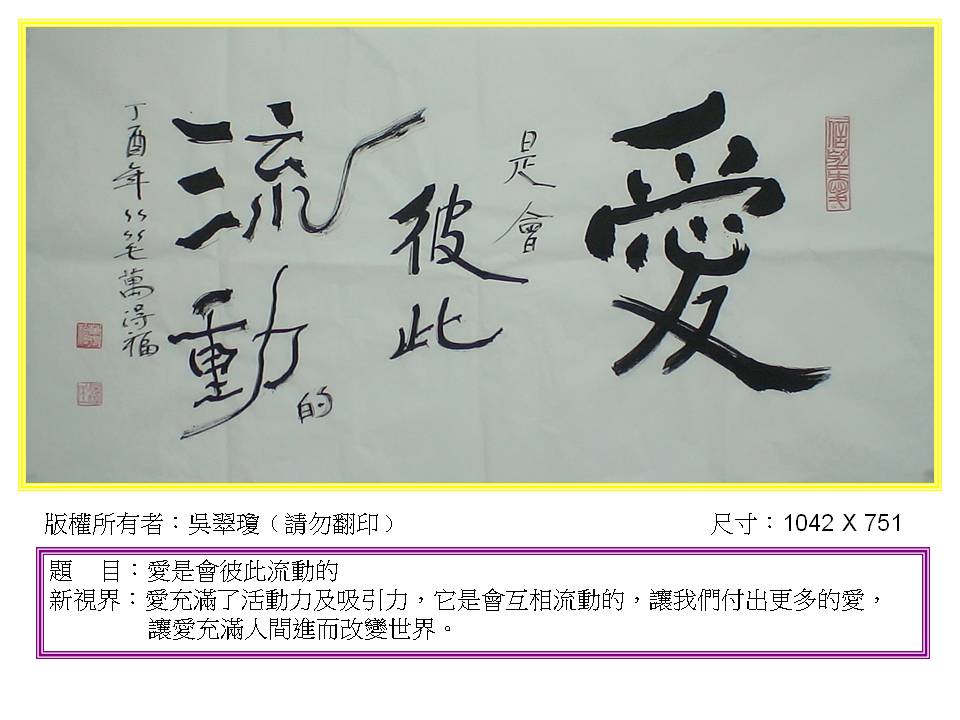 愛
是會
彼此
流動的
丁酉年 竹笔 萬得福
版權所有者：吳翠瓊（請勿翻印）
尺寸：1042 X 751
題　目：愛是會彼此流動的
新視界：愛充滿了活動力及吸引力，它是會互相流動的，讓我們付出更多的愛，
讓愛充滿人間進而改變世界。